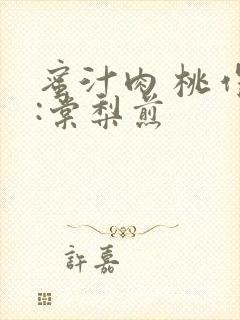 蜜汁肉桃作
:棠梨煎
許嘉